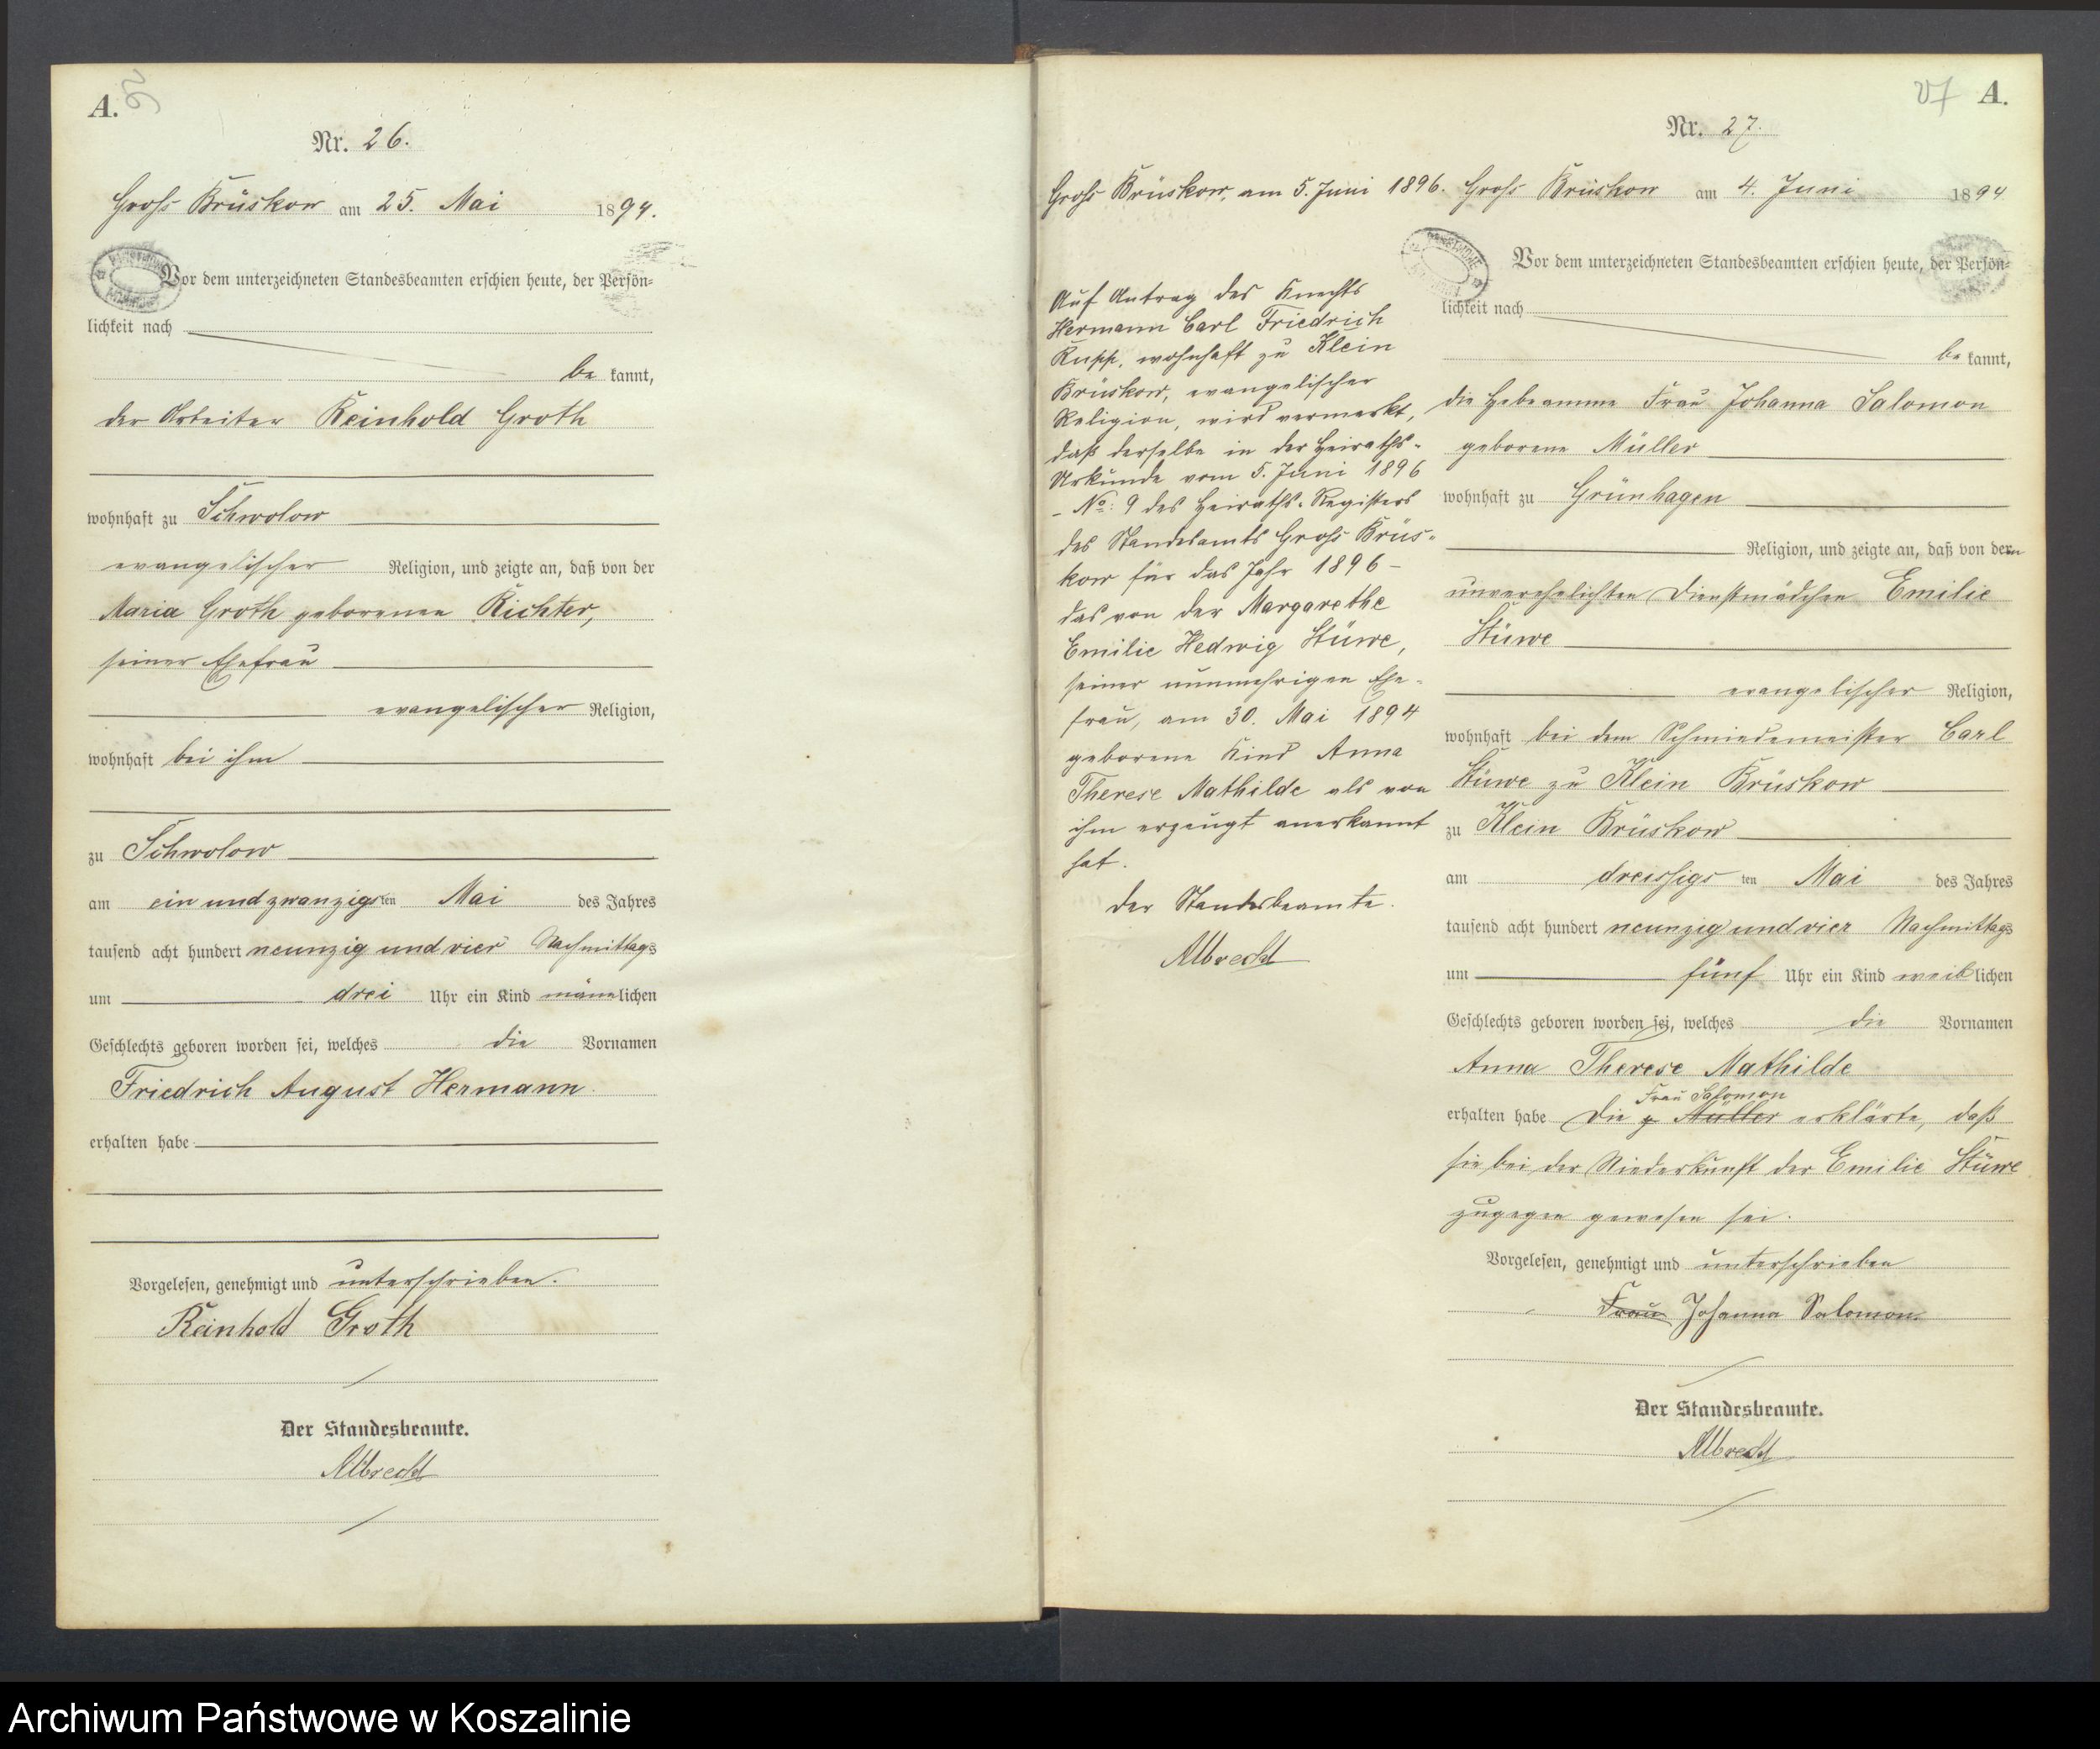 A.
Nr. 26.
Groß Brüskow am 25. Mai 1894.
Vor dem unterzeichneten Standesbeamten erschien heute, der Persön=
lichkeit nach
be kannt,
der Arbeiter Reinhold Groth
wohnhaft zu Schwolow
evangelischer Religion, und zeigte an, daß von der
Maria Groth geborenen Richter,
seiner Ehefrau
evangelischer Religion,
wohnhaft bei ihm
zu Schwolow
am ein und zwanzigsten Mai des Jahres
tausend acht hundert neunzig und vier Nachmittags
um drei Uhr ein Kind männlichen
Geschlechts geboren worden sei, welches die Vornamen
Friedrich August Hermann.
erhalten habe
Vorgelesen, genehmigt und unterschrieben.
Reinhold Groth
Der Standesbeamte.
Albrecht
Groß Brüskow, am 5. Juni 1896.
Auf Antrag des Knechts
Hermann Carl Friedrich
Rupp, wohnhaft zu Klein
Brüskow, evangelischer
Religion, wird vermerkt,
daß derselbe in der Heiraths-
Urkunde vom 5. Juni 1896
- No: 9 des Heiraths-Registers
des Standesamts Groß Brüs-
kow für das Jahr 1896 -
das von der Margarethe
Emilie Hedwig Stüwe,
seiner nunmehrigen Ehe-
frau, am 30. Mai 1894
geborene Kind Anna
Therese Mathilde als von
ihm erzeugt anerkannt
hat.
Der Standesbeamte.
Albrecht
27 A.
Nr. 27.
Groß Brüskow am 4. Juni 1894
Vor dem unterzeichneten Standesbeamten erschien heute, der Persön=
lichkeit nach
be kannt,
die Hebeamme Frau Johanna Salomon
geborene Müller
wohnhaft zu Grünhagen
Religion, und zeigte an, daß von dem
unverehelichten Dienstmädchen Emilie
Stüwe
evangelischer Religion,
wohnhaft bei dem Schmiedemeister Carl
Stüwe zu Klein Brüskow
zu Klein Brüskow
am dreissigsten Mai des Jahres
tausend acht hundert neunzig und vier Nachmittags
um fünf Uhr ein Kind weiblichen
Geschlechts geboren worden sei, welches die Vornamen
Anna Therese Mathilde
Frau Salomon
erhalten habe Die p Müller erklärte, daß
sie bei der Niederkunft der Emilie Stüwe
zugegen gewesen sei.
Vorgelesen, genehmigt und unterschrieben
Frau Johanna Salomon
Der Standesbeamte.
Albrecht
Archiwum Państwowe w Koszalinie